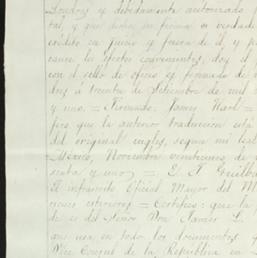 Londres y debidamente autorizado
tal, y que dicha su firma es verdade
crédito en juicio y fuera de él, y p
cause los efectos convenientes, doy el
con el sello de oficio y firmado de
dres á treinta de Setiembre de mil
y uno. = Fernando James Karl =
fico que la anterior traducción está
del original inglés, según mi leal
México, Noviembre veintiuno de
senta y uno) = E. A Guilbau
El infrascrito Oficial Mayor del M
ciones exteriores = Certifico: que la
de es del Señor Don Javier L.
que usa en todo los documentos y
Vice Consul de la República en